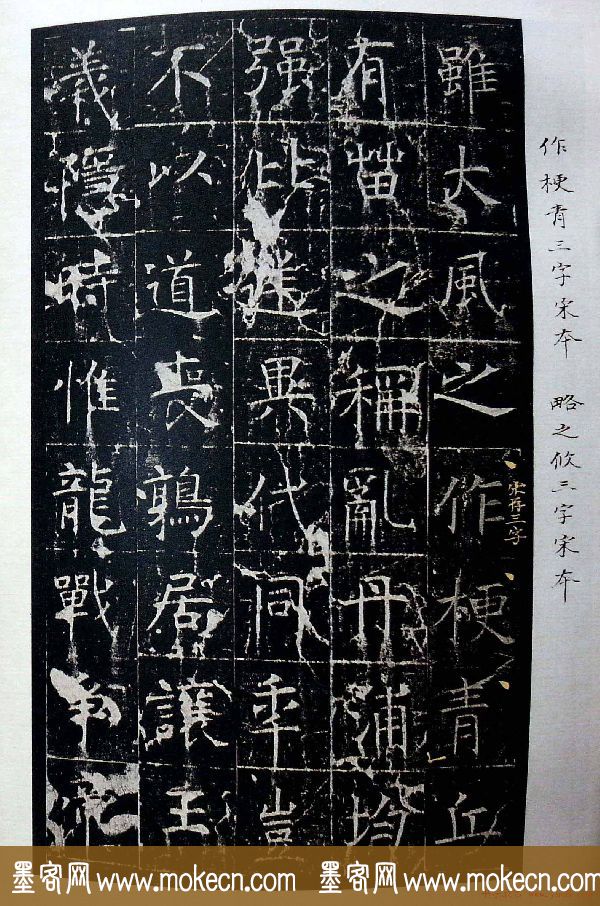 作梗青三字宋本 略之攸三字宋本
雖大風之作梗青丘
宋存三字
有苗之稱亂丹浦均
强比異代同年豈
不以道喪鶉居讓王
義隱時惟龍戰爭
墨客网 www.mokecn.com 墨客网 www.mokecn.com